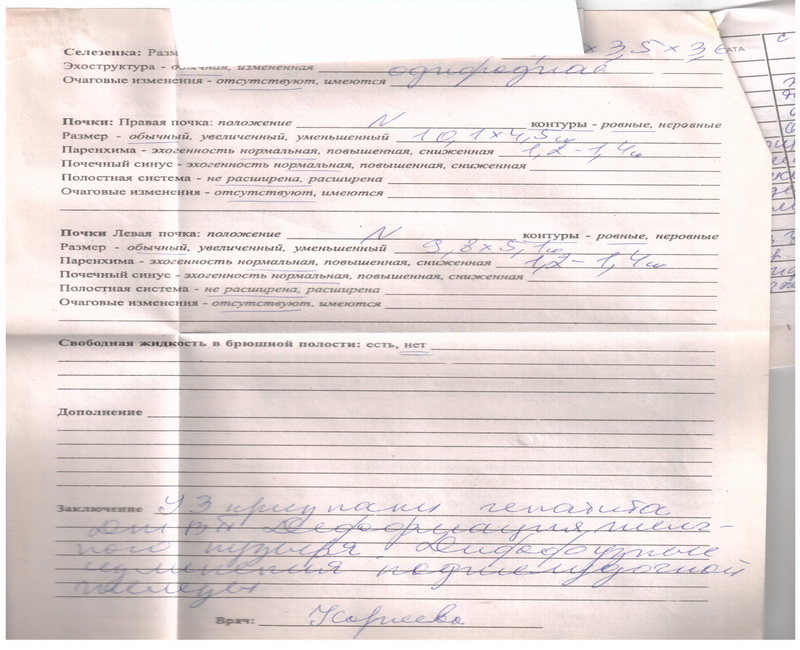 Селезенка: Разм × 3,5 × 3,6
Эхоструктура - обычная, измененная однородная
Очаговые изменения - отсутствуют, имеются
Почки: Правая почка: положение N контуры - ровные, неровные
Размер - обычный, увеличенный, уменьшенный 10,1×4,5см
Паренхима - эхогенность нормальная, повышенная, сниженная 1,2-1,4см
Почечный синус - эхогенность нормальная, повышенная, сниженная
Полостная система - не расширена, расширена
Очаговые изменения - отсутствуют, имеются
Почки Левая почка: положение N контуры - ровные, неровные
Размер - обычный, увеличенный, уменьшенный 9,8×5,1см
Паренхима - эхогенность нормальная, повышенная, сниженная 1,2-1,4см
Почечный синус - эхогенность нормальная, повышенная, сниженная
Полостная система - не расширена, расширена
Очаговые изменения - отсутствуют, имеются
Свободная жидкость в брюшной полости: есть, нет
Дополнение
Заключение УЗ признаки гепатита
Деформация желч-
ного пузыря Диффузные
изменения поджелудочной
железы
Врач: